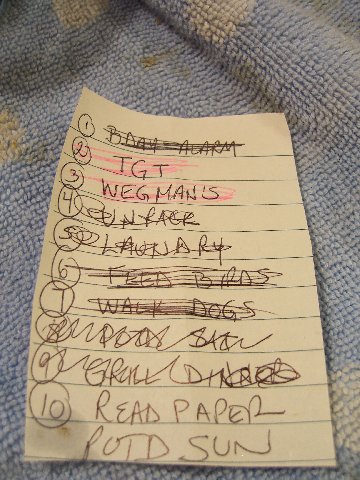 1 BABY ALARM
2 TGT
3 WEGMANS
4 UNPACK
5 LAUNDRY
6 FEED BIRDS
7 WALK DOGS
8 POTD SAT
9 GRILL DINNER
10 READ PAPER
POTD SUN